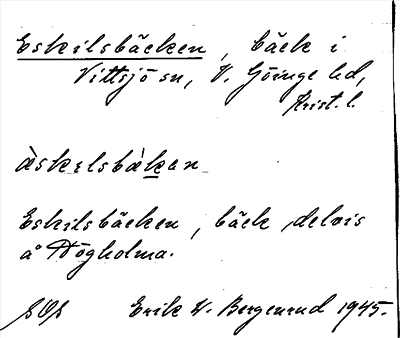 Eskilsbäcken, bäck i
Vittsjö sn, V. Göinge hd,
Krist. l.
àskɛlsbàkan
Eskilsbäcken, bäck delvis
å Högholma.
Erik W. Bergenrud 1945.